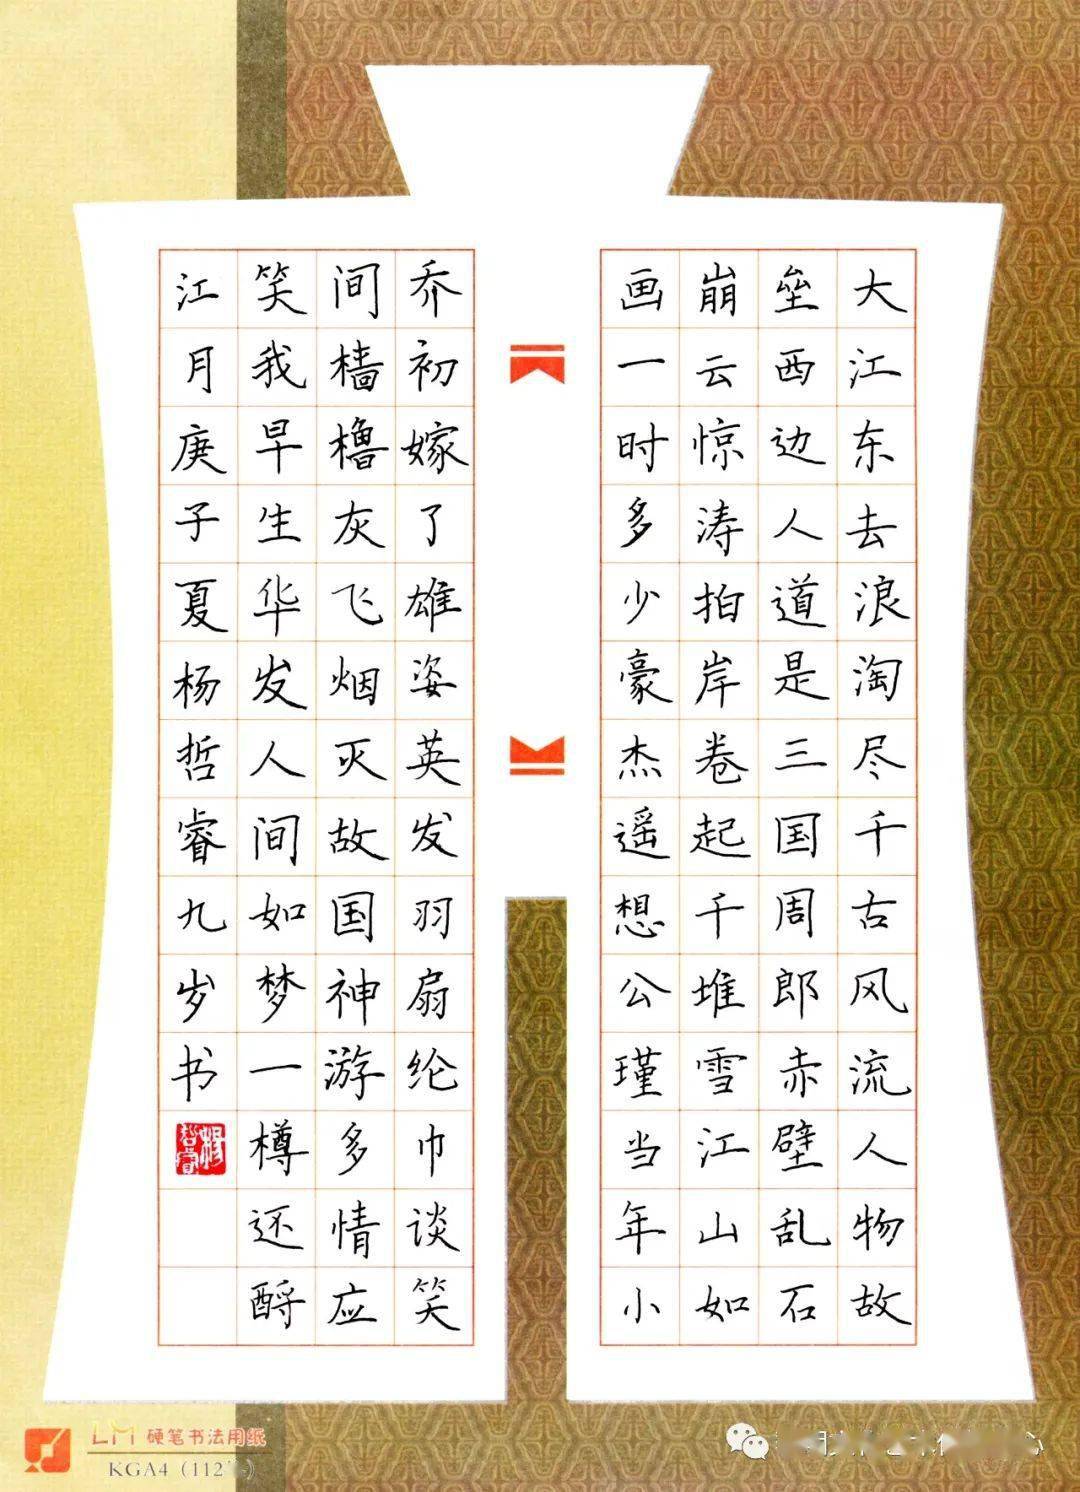 大江东去浪淘尽千古风流人物故
垒西边人道是三国周郎赤壁乱石
崩云惊涛拍岸卷起千堆雪江山如
画一时多少豪杰遥想公瑾当年小
乔初嫁了雄姿英发羽扇纶巾谈笑
间樯橹灰飞烟灭故国神游多情应
笑我早生华发人间如梦一樽还酹
江月庚子夏杨哲睿九岁书
杨哲睿
LM 硬笔书法用纸
KGA4（112）